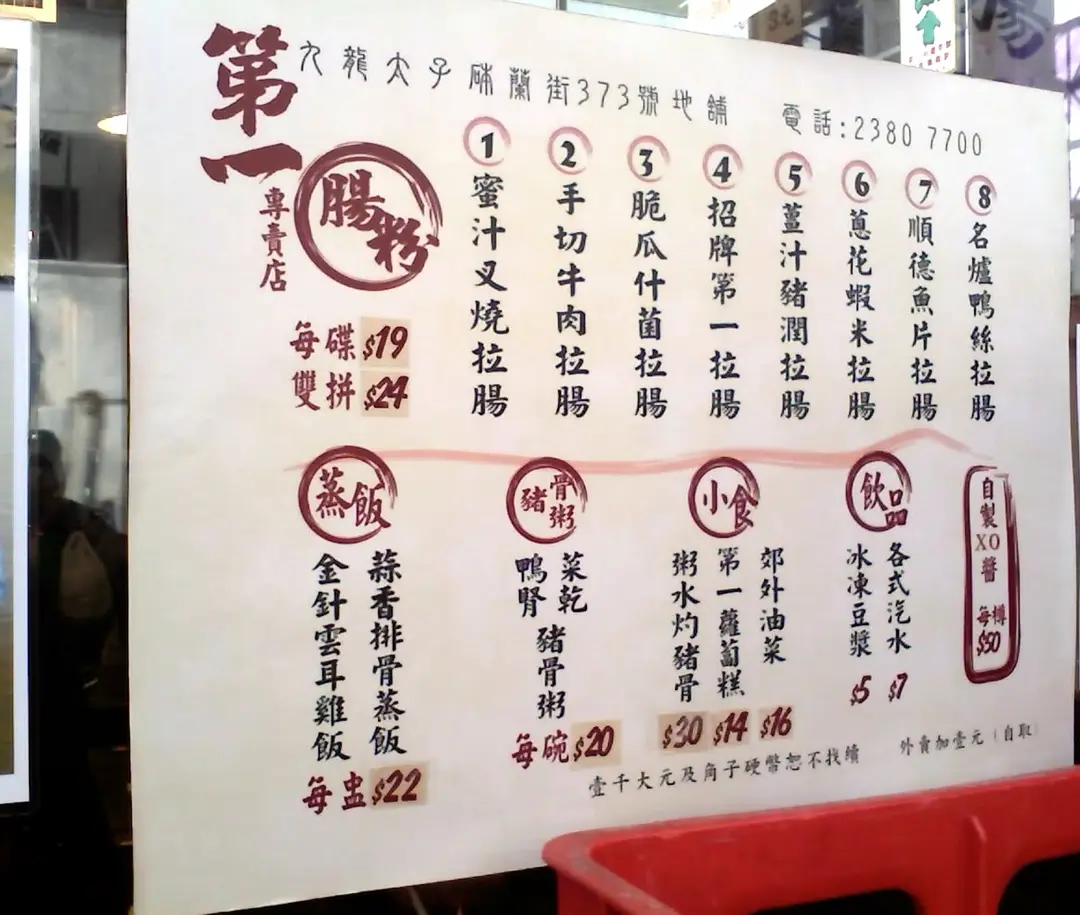 第一
腸粉
專賣店
九龍太子砵蘭街373號地舖
電話:2380 7700
每碟$19
雙拼$24
1 蜜汁叉燒拉腸
2 手切牛肉拉腸
3 脆瓜什菌拉腸
4 招牌第一拉腸
5 薑汁豬潤拉腸
6 蔥花蝦米拉腸
7 順德魚片拉腸
8 名爐鴨絲拉腸
蒸飯
蒜香排骨蒸飯
金針雲耳雞飯
每盅$22
豬骨粥
菜乾
鴨腎
豬骨粥
每碗$20
小食
郊外油菜
$16
第一蘿蔔糕
$14
粥水灼豬骨
$30
飲品
各式汽水
$7
冰凍豆漿
$5
自製XO醬
每樽
$50
壹千大元及角子硬幣恕不找續
外賣加壹元(自取)